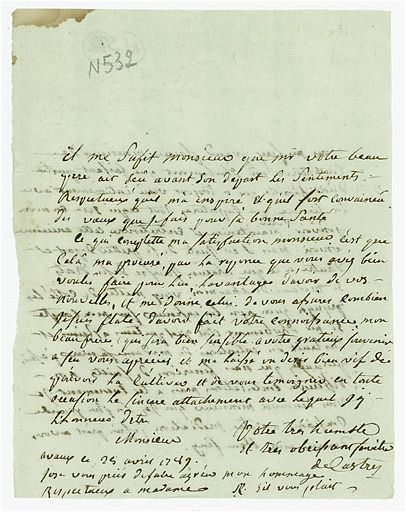 N 532
il me sufit monsieur que mr votre beau
pere ait scu avant son depart les sentiments
Respectueux qu'il m'a inspiré et quil soit convaincu
des vœux que je fais pour sa bonne santé
Ce qui complette ma satisfaction monsieur c'est que
Cela ma procuré par la reponce que vous avés bien
voulu faire pour lui, lavantage davoir de vos
nouvelles, et me donne celui de vous assurer combien
je suis flaté davoir fait votre connoissance mon
beau frere, qui sera bien sensible a votre gratieux souvenir
a scu vous aprecier, il me laisse un desir bien vif de
pouvoir la Cultiver et de vous temoigner en toute
occasion le sincere attachement avec lequel jay
Lhonneur detre
Monsieur
Votre tres humble
et tres obeissant serviteur
de Lastre
ce 25 avril 1789
jose vous prier de faire agréer mon hommage
Respectueux a madame
R. sil vous plait